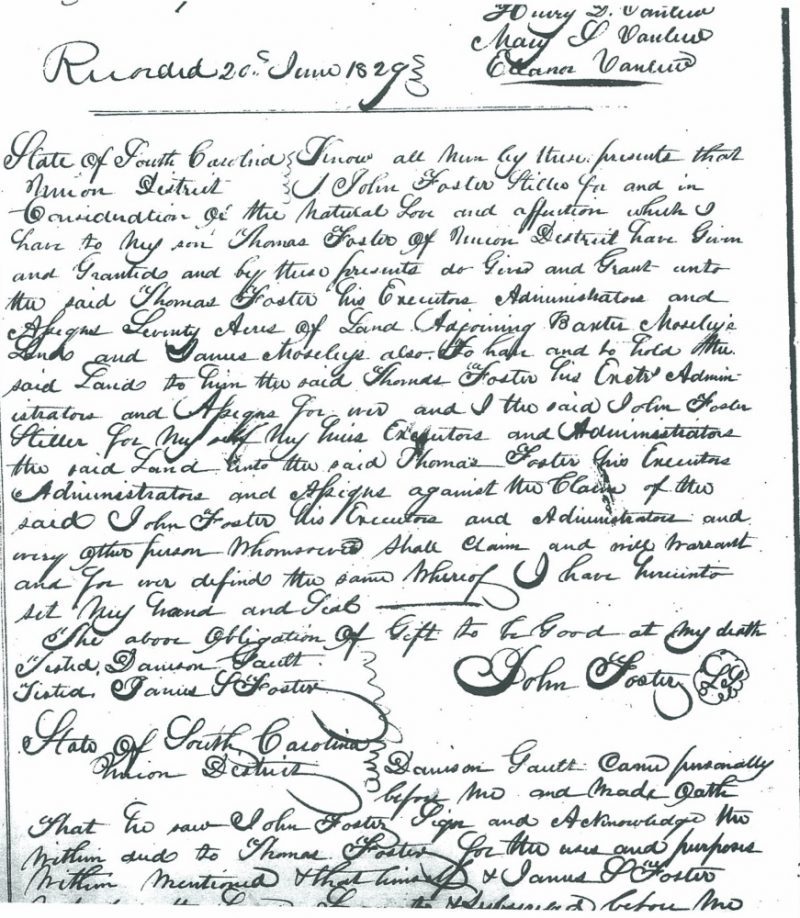 Henry D. Vanlew
Mary S Vanlew
Recorded 20th June 1829
Eleanor Vanlew
State Of South Carolina Know all Men by these presents that
Union District I John Foster Stiller for and in
Consideration Of the Natural Love and affection which I
have to My son Thomas Foster Of Union District have Given
and Granted and by these presents do Give and Grant unto
the said Thomas Foster his Executors Administrators and
Assigns Seventy Acres Of Land Adjoining Baxter Moseley's
Land and James Moseleys also. To have and to hold the
said Land to him the said Thomas Foster his Exctr Admin-
istrators and Assigns for ever and I the said John Foster
Stiller for My self My heirs Executors and Administrators
the said Land unto the said Thomas Foster his Executors
Administrators and Assigns against the Claim of the
said John Foster his Executors and Administrators and
every other person Whomsoever Shall Claim and will Warrant
and for ever defend the same Whereof I have hereunto
set My hand and Seal
The above Obligation Of Gift to be Good at My death
Tested, Davison Gault
John Foster LS
Tested, James S Foster
State Of South Carolina
Union District Davison Gault Came personally
before Me and Made Oath
That he saw John Foster Sign and Acknowledge the
Within deed to Thomas Foster for the uses and purposes
Within Mentioned & that himself & James S Foster
before Me